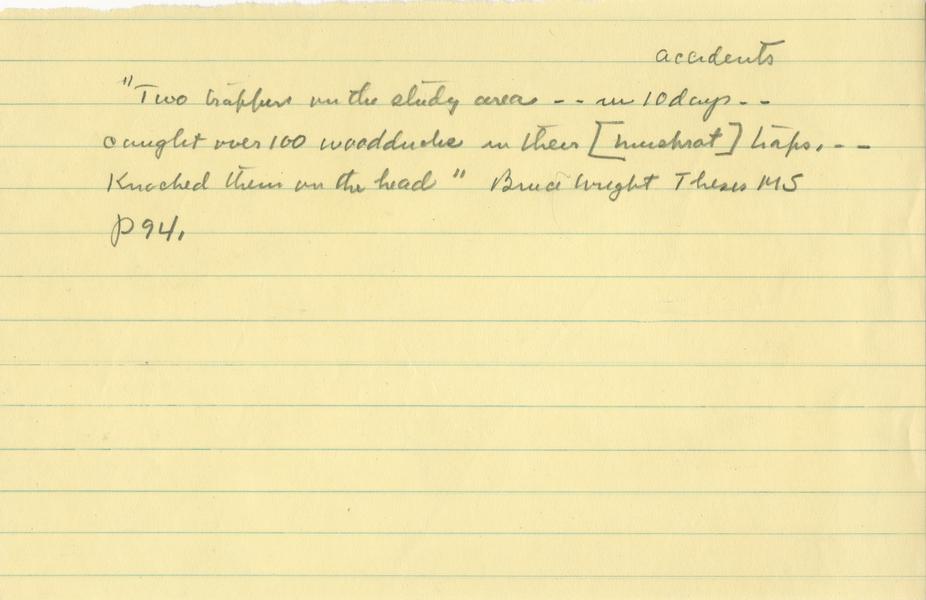 accidents
"Two trappers on the study area -- in 10 days --
caught over 100 woodducks in their [muskrat] traps. --
Knocked them on the head" Bruce Wright Thesis MS
p 94.